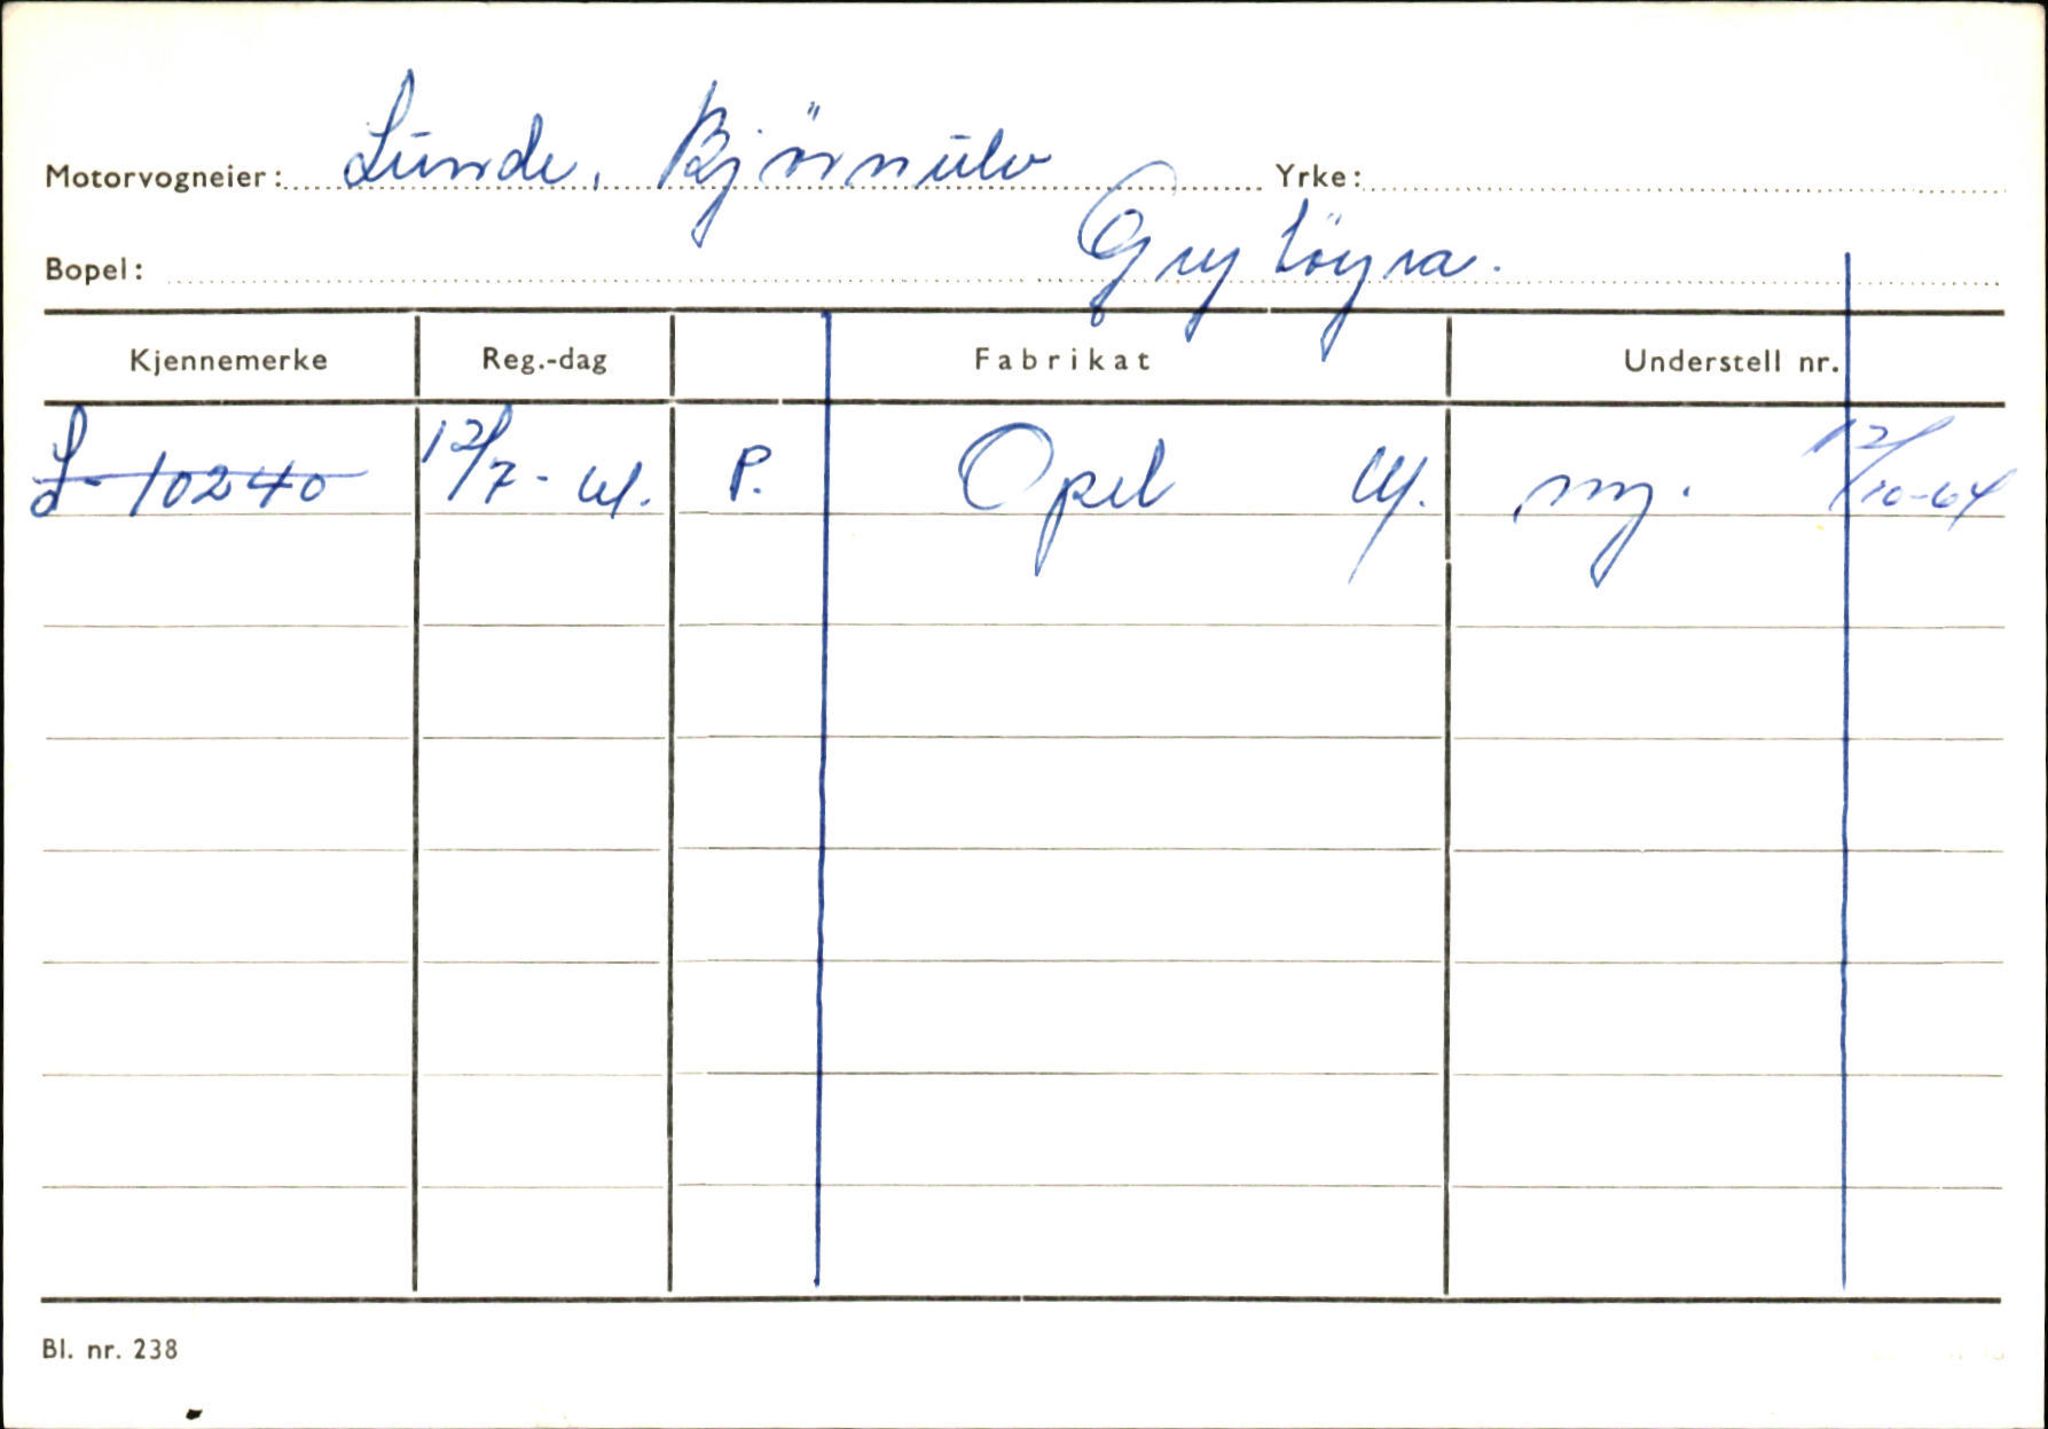 Motorvogneier: Lunde, Björnulv Yrke:
Bopel: Grytöyra.
Kjennemerke Reg.-dag Fabrikat Understell nr.
L-10240 12/7-61. P. Opel 61. ny. 12/10-64
Bl. nr. 238